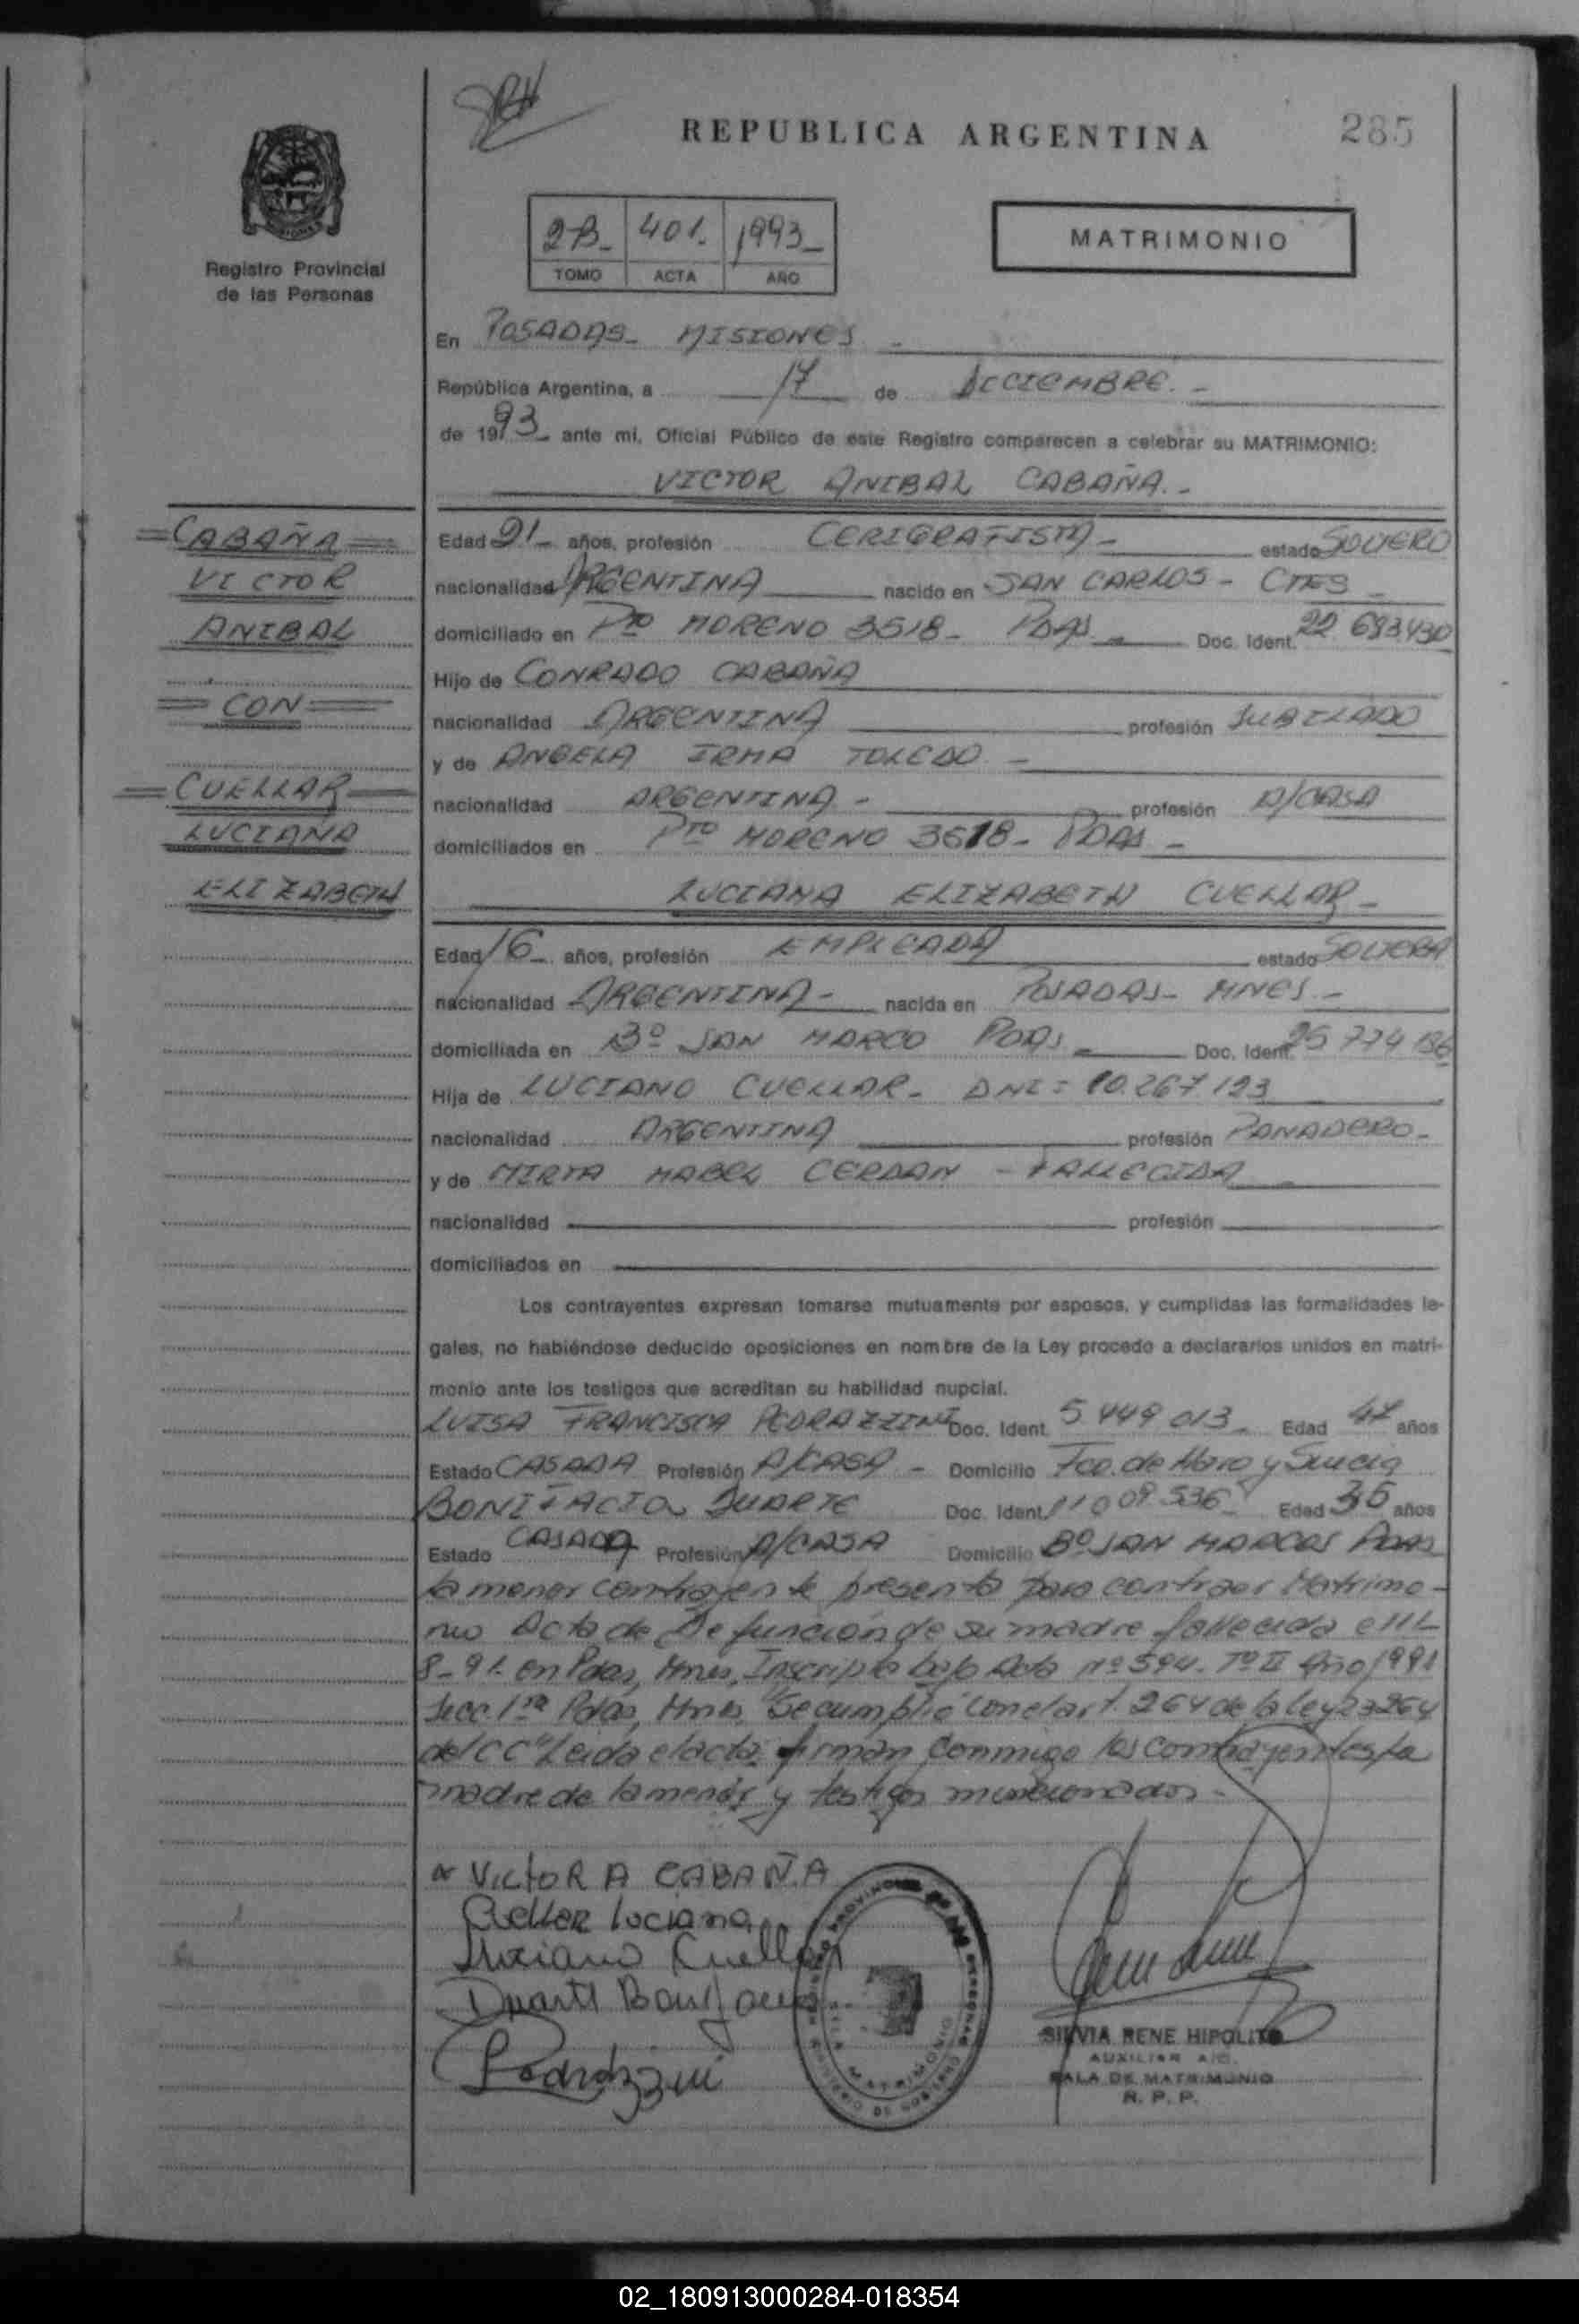 REPUBLICA ARGENTINA
285
Registro Provincial
de las Personas
2B- 401. 1993-
TOMO ACTA AÑO
MATRIMONIO
En POSADAS- MISIONES -
República Argentina, a 17 de DICIEMBRE. -
de 1993- ante mí, Oficial Público de este Registro comparecen a celebrar su MATRIMONIO:
VICTOR ANIBAL CABAÑA.-
=CABAÑA=
VICTOR
ANIBAL
=CON=
=CUELLAR=
LUCIANA
ELIZABETH
Edad 21- años, profesión CERIGRAFISTA- estado SOLTERO
nacionalidad ARGENTINA nacido en SAN CARLOS - CTES -
domiciliado en Pto MORENO 3518- PDAS - Doc. Ident. 22 693430
Hijo de CONRADO CABAÑA
nacionalidad ARGENTINA profesión JUBILADO
y de ANGELA IRMA TOLEDO -
nacionalidad ARGENTINA - profesión A/CASA
domiciliados en Pto MORENO 3618- PDAS -
LUCIANA ELIZABETH CUELLAR-
Edad 16- años, profesión EMPLEADA estado SOLTERA
nacionalidad ARGENTINA- nacida en POSADAS- MNES-
domiciliada en Bº SAN MARCO PDAS - Doc. Ident. 25 774 186
Hija de LUCIANO CUELLAR- DNI= 10.267 123
nacionalidad ARGENTINA profesión PANADERO-
y de MIRTA MABEL CERDAN - FALLECIDA -
nacionalidad profesión
domiciliados en
Los contrayentes expresan tomarse mutuamente por esposos, y cumplidas las formalidades le-
gales, no habiéndose deducido oposiciones en nombre de la Ley procedo a declararlos unidos en matri-
monio ante los testigos que acreditan su habilidad nupcial.
LUISA FRANCISCA PEDRAZZINI Doc. Ident. 5 449 013- Edad 47 años
Estado CASADA Profesión A/CASA - Domicilio Fco. de Haro y Suecia
BONIFACIA DUARTE Doc. Ident. 11 009 536 Edad 36 años
Estado CASADA Profesión A/CASA Domicilio Bº SAN MARCOS PDAS
la menor contrayente presenta para contraer Matrimo-
nio Acta de Defunción de su madre fallecida el 11-
8-91. en Pdas, Mnes, Inscripta bajo Acta nº 594. Tº II Año 1991
Secc. 1ra Pdas, Mnes, Se cumplió con el art. 264 de la Ley 23264
del CCº Leida el acta, firman conmigo los contrayentes, la
madre de la menor y testigos mencionados -
VICTOR A CABAÑA
Cuellar Luciana
Luciano Cuellar
Duarte Bonifacia
Pedrazzini
REGISTRO PROVINCIAL DE LAS PERSONAS
SALA MATRIMONIO
MINISTERIO DE GOBIERNO
SILVIA RENE HIPOLITO
AUXILIAR
SALA DE MATRIMONIO
R. P. P.
02_180913000284-018354